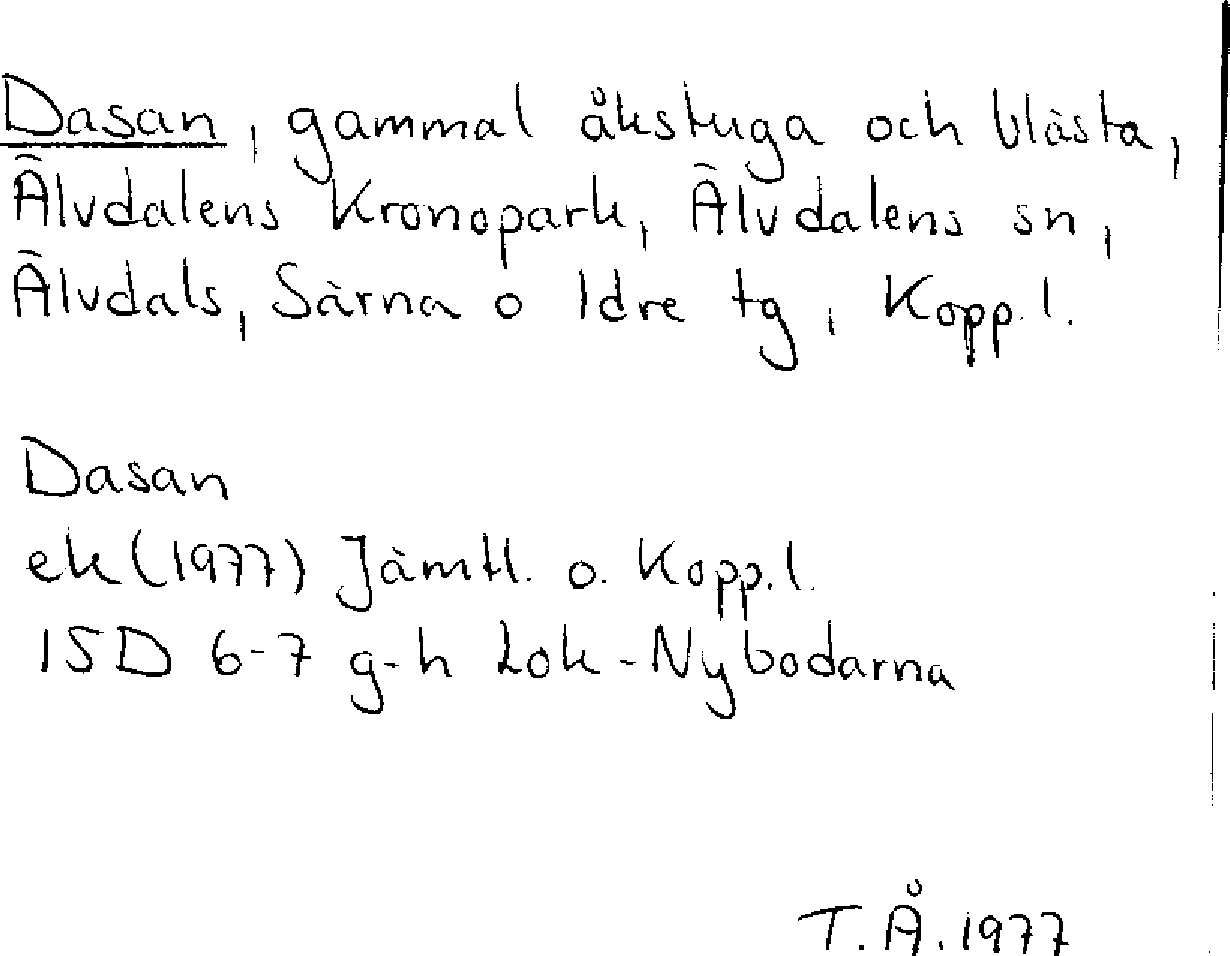 Dasan, gammal åkstuga och blåsta,
Älvdalens Kronopark, Älvdalens sn,
Älvdals, Särna o Idre tg, Kopp. l.
Dasan
ek (1977) Jämtl. o. Kopp. l.
15D 6-7 g-h Lok-Nybodarna
T. Å. 1977